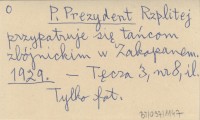 O P. Prezydent Rzplitej
przypatruje się tańcom
zbójnickim w Zakopanem.
1929. – Tęcza 3, nr 8, il.
Tylko fot.